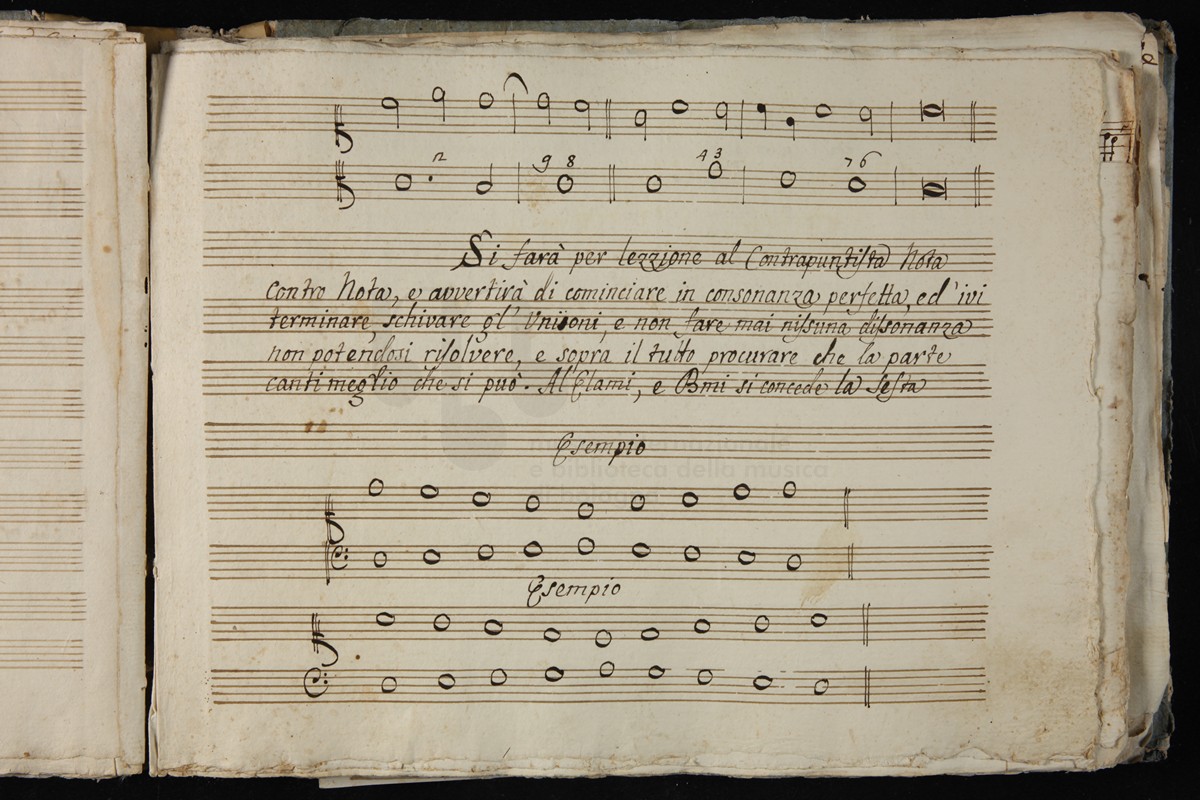 2 9 8 4 3 7 6
Si farà per lezzione al Contrapuntista Nota
contro Nota, e avvertirà di cominciare in consonanza perfetta, ed' ivi
terminare, schivare gl' Unisoni, e non fare mai nissuna dissonanza
non potendosi risolvere, e sopra il tutto procurare che la parte
canti meglio che si può. Al' Elami, e Bmi si concede la sesta
Esempio
museo internazionale
e biblioteca della musica
di bologna
Esempio